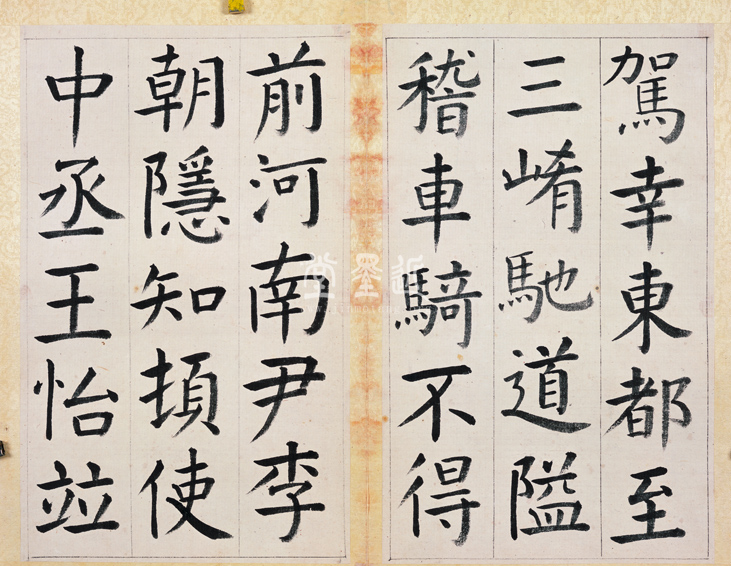 駕幸東都至
三崤馳道隘
稽車騎不得
前河南尹李
朝隱知頓使
中丞王怡竝